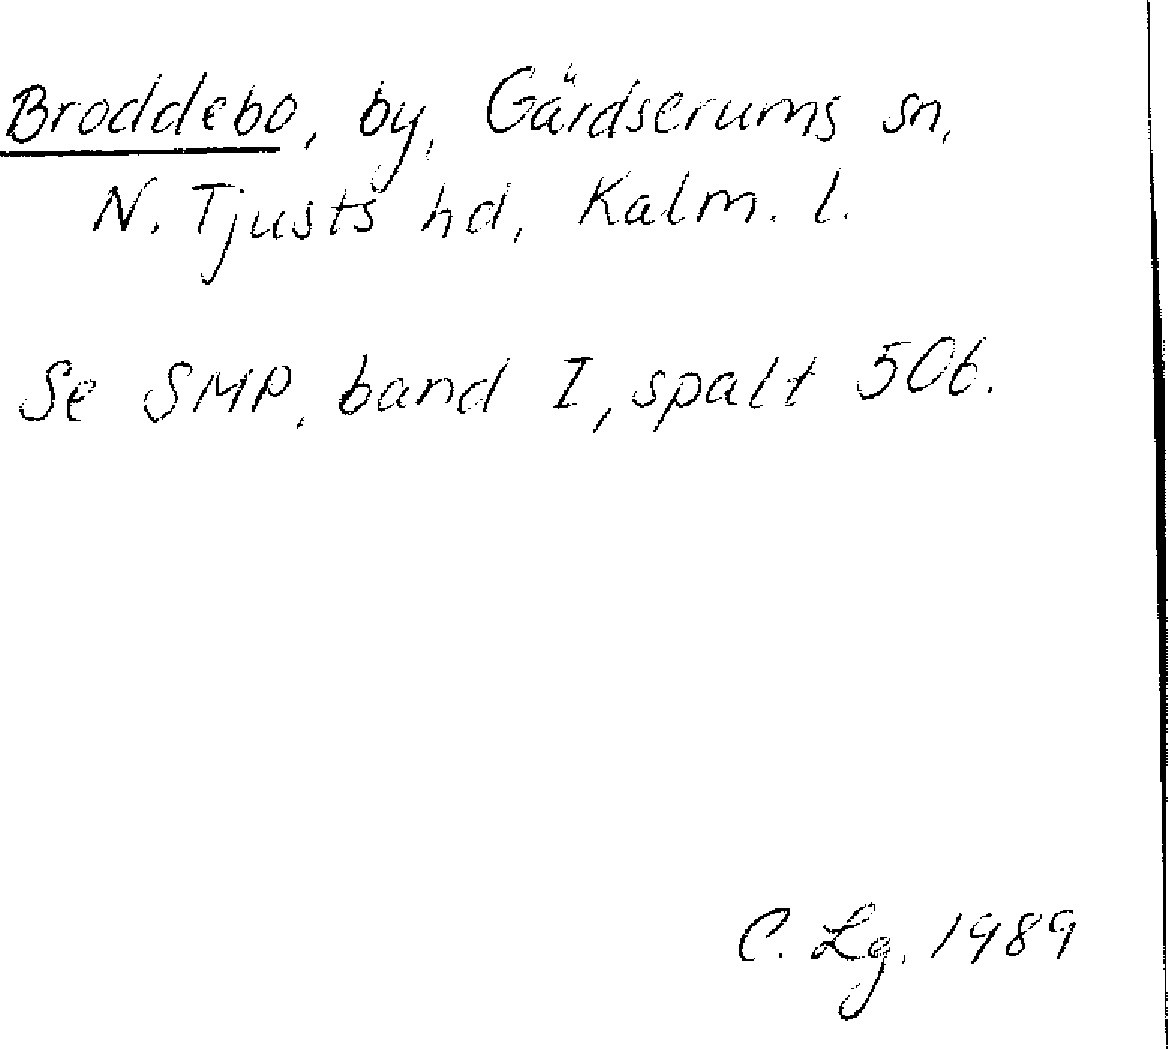 Broddebo, by, Gärdserums sn,
N. Tjusts hd, Kalm. l.
Se SMP, band I, spalt 506.
C. Lg. 1989